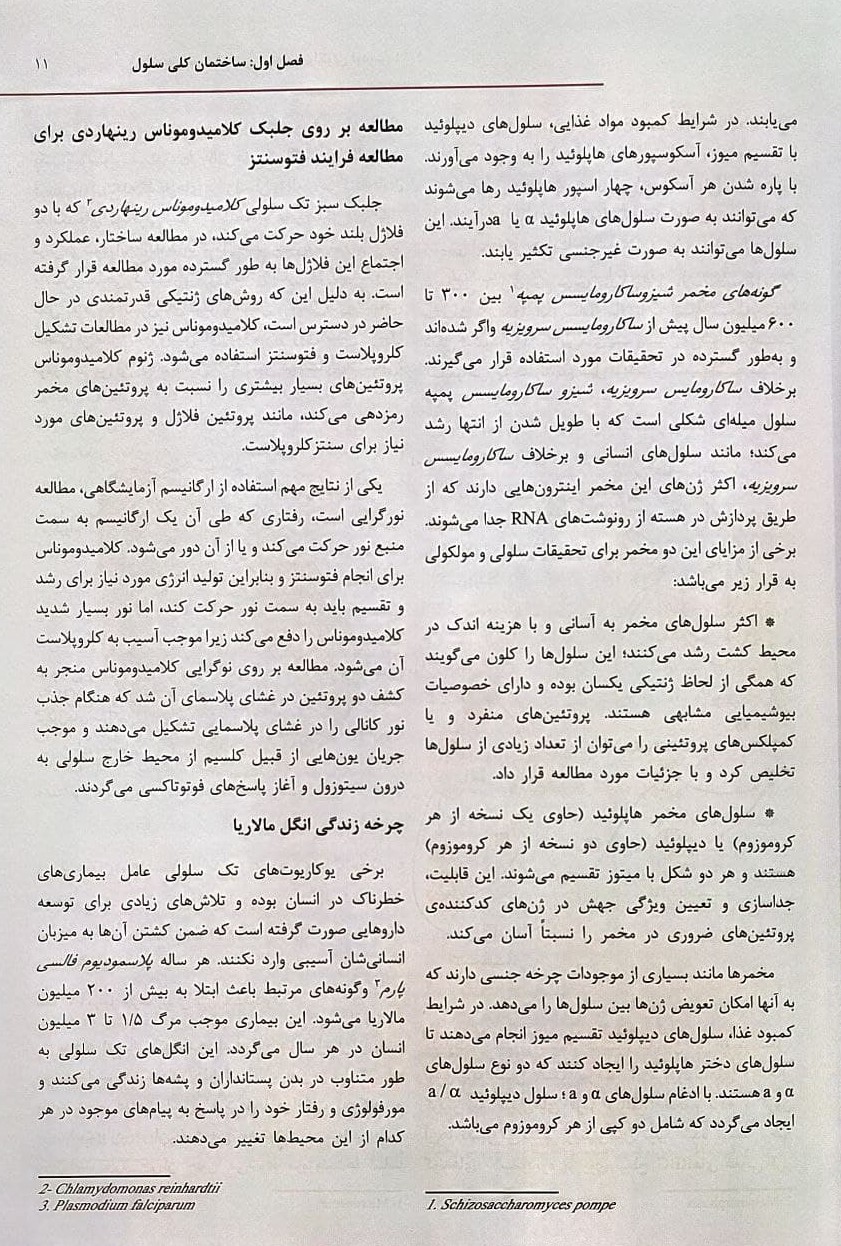 فصل اول: ساختمان کلی سلول
۱۱
می‌یابند. در شرایط کمبود مواد غذایی، سلول‌های دیپلوئید
با تقسیم میوز، آسکوسپورهای هاپلوئید را به وجود می‌آورند.
با پاره شدن هر آسکوس، چهار اسپور هاپلوئید رها می‌شوند
که می‌توانند به صورت سلول‌های هاپلوئید α یا aدرآیند. این
سلول‌ها می‌توانند به صورت غیرجنسی تکثیر یابند.
گونه‌های مخمر شیزوساکارومایسس پمپه۱ بین ۳۰۰ تا
۶۰۰میلیون سال پیش از ساکارومایسس سرویزیه واگر شده‌اند
و به‌طور گسترده در تحقیقات مورد استفاده قرار می‌گیرند.
برخلاف ساکارومایس سرویزیه، شیزو ساکارومایسس پمپه
سلول میله‌ای شکلی است که با طویل شدن از انتها رشد
می‌کند؛ مانند سلول‌های انسانی و برخلاف ساکارومایسس
سرویزیه، اکثر ژن‌های این مخمر اینترون‌هایی دارند که از
طریق پردازش در هسته از رونوشت‌های RNA جدا می‌شوند.
برخی از مزایای این دو مخمر برای تحقیقات سلولی و مولکولی
به قرار زیر می‌باشد:
* اکثر سلول‌های مخمر به آسانی و با هزینه اندک در
محیط کشت رشد می‌کنند؛ این سلول‌ها را کلون می‌گویند
که همگی از لحاظ ژنتیکی یکسان بوده و دارای خصوصیات
بیوشیمیایی مشابهی هستند. پروتئین‌های منفرد و یا
کمپلکس‌های پروتئینی را می‌توان از تعداد زیادی از سلول‌ها
تخلیص کرد و با جزئیات مورد مطالعه قرار داد.
* سلول‌های مخمر هاپلوئید (حاوی یک نسخه از هر
کروموزوم) یا دیپلوئید (حاوی دو نسخه از هر کروموزوم)
هستند و هر دو شکل با میتوز تقسیم می‌شوند. این قابلیت،
جداسازی و تعیین ویژگی جهش در ژن‌های کدکننده‌ی
پروتئین‌های ضروری در مخمر را نسبتاً آسان می‌کند.
مخمرها مانند بسیاری از موجودات چرخه جنسی دارند که
به آنها امکان تعویض ژن‌ها بین سلول‌ها را می‌دهد. در شرایط
کمبود غذا، سلول‌های دیپلوئید تقسیم میوز انجام می‌دهند تا
سلول‌های دختر هاپلوئید را ایجاد کنند که دو نوع سلول‌های
α و a هستند. با ادغام سلول‌های α و a ؛ سلول دیپلوئید a / α
ایجاد می‌گردد که شامل دو کپی از هر کروموزوم می‌باشد.
1. Schizosaccharomyces pompe
مطالعه بر روی جلبک کلامیدوموناس رینهاردی برای
مطالعه فرایند فتوسنتز
جلبک سبز تک سلولی کلامیدوموناس رینهاردی۲ که با دو
فلاژل بلند خود حرکت می‌کند، در مطالعه ساختار، عملکرد و
اجتماع این فلاژل‌ها به طور گسترده مورد مطالعه قرار گرفته
است. به دلیل این که روش‌های ژنتیکی قدرتمندی در حال
حاضر در دسترس است، کلامیدوموناس نیز در مطالعات تشکیل
کلروپلاست و فتوسنتز استفاده می‌شود. ژنوم کلامیدوموناس
پروتئین‌های بسیار بیشتری را نسبت به پروتئین‌های مخمر
رمزدهی می‌کند، مانند پروتئین فلاژل و پروتئین‌های مورد
نیاز برای سنتزکلروپلاست.
یکی از نتایج مهم استفاده از ارگانیسم آزمایشگاهی، مطالعه
نورگرایی است، رفتاری که طی آن یک ارگانیسم به سمت
منبع نور حرکت می‌کند و یا از آن دور می‌شود. کلامیدوموناس
برای انجام فتوسنتز و بنابراین تولید انرژی مورد نیاز برای رشد
و تقسیم باید به سمت نور حرکت کند، اما نور بسیار شدید
کلامیدوموناس را دفع می‌کند زیرا موجب آسیب به کلروپلاست
آن می‌شود. مطالعه بر روی نوگرایی کلامیدوموناس منجر به
کشف دو پروتئین در غشای پلاسمای آن شد که هنگام جذب
نور کانالی را در غشای پلاسمایی تشکیل می‌دهند و موجب
جریان یون‌هایی از قبیل کلسیم از محیط خارج سلولی به
درون سیتوزول و آغاز پاسخ‌های فوتوتاکسی می‌گردند.
چرخه زندگی انگل مالاریا
برخی یوکاریوت‌های تک سلولی عامل بیماری‌های
خطرناک در انسان بوده و تلاش‌های زیادی برای توسعه
داروهایی صورت گرفته است که ضمن کشتن آن‌ها به میزبان
انسانی‌شان آسیبی وارد نکنند. هر ساله پلاسمودیوم فالسی
پارم۳ وگونه‌های مرتبط باعث ابتلا به بیش از ۲۰۰ میلیون
مالاریا می‌شود. این بیماری موجب مرگ ۱/۵ تا ۳ میلیون
انسان در هر سال می‌گردد. این انگل‌های تک سلولی به
طور متناوب در بدن پستانداران و پشه‌ها زندگی می‌کنند و
مورفولوژی و رفتار خود را در پاسخ به پیام‌های موجود در هر
کدام از این محیط‌ها تغییر می‌دهند.
2- Chlamydomonas reinhardtii
3. Plasmodium falciparum